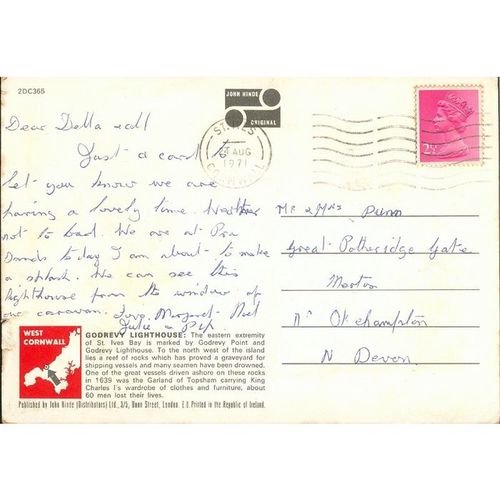 2DC365
JOHN HINDE
ORIGINAL
ST. IVES
AUG
1971
CORNWALL
2½
Dear Della & all
Just a card to
let you know we are
having a lovely time. Weather
not to bad. We are at Pra
Sands today I am about to make
a splash. We can see this
lighthouse from the window of
our caravan. Love. Margaret
Julie
Mr & Mrs Dunn
Great Potheridge Gate
Merton
Nr Okehampton
N Devon
WEST
CORNWALL
GODREVY LIGHTHOUSE: The eastern extremity
of St. Ives Bay is marked by Godrevy Point and
Godrevy Lighthouse. To the north west of the island
lies a reef of rocks which has proved a graveyard for
shipping vessels and many seamen have drowned.
One of the great vessels driven ashore on these rocks
in 1639 was the Garland of Topsham carrying King
Charles I's wardrobe of clothes and furniture, about
60 men lost their lives.
Published by John Hinde (Distributors) Ltd., 3/5, Dunn Street, London. E.8. Printed in the Republic of Ireland.